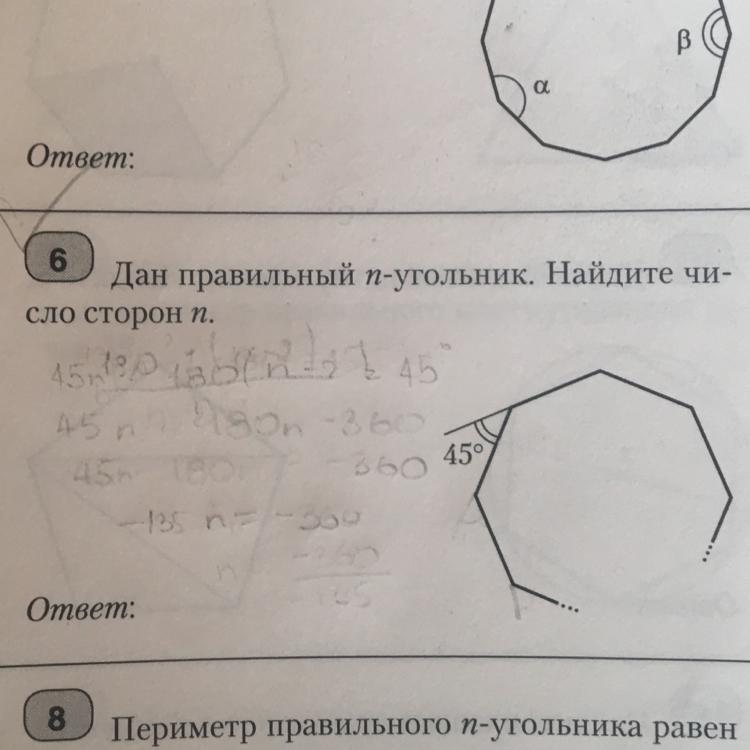 β
α
Ответ:
6 Дан правильный n-угольник. Найдите чи-
сло сторон n.
45n 180(n-2) = 45°
45n 180n -360
45n 180n -360
45°
-135 n = -360
n -360
-135
Ответ:
8 Периметр правильного n-угольника равен